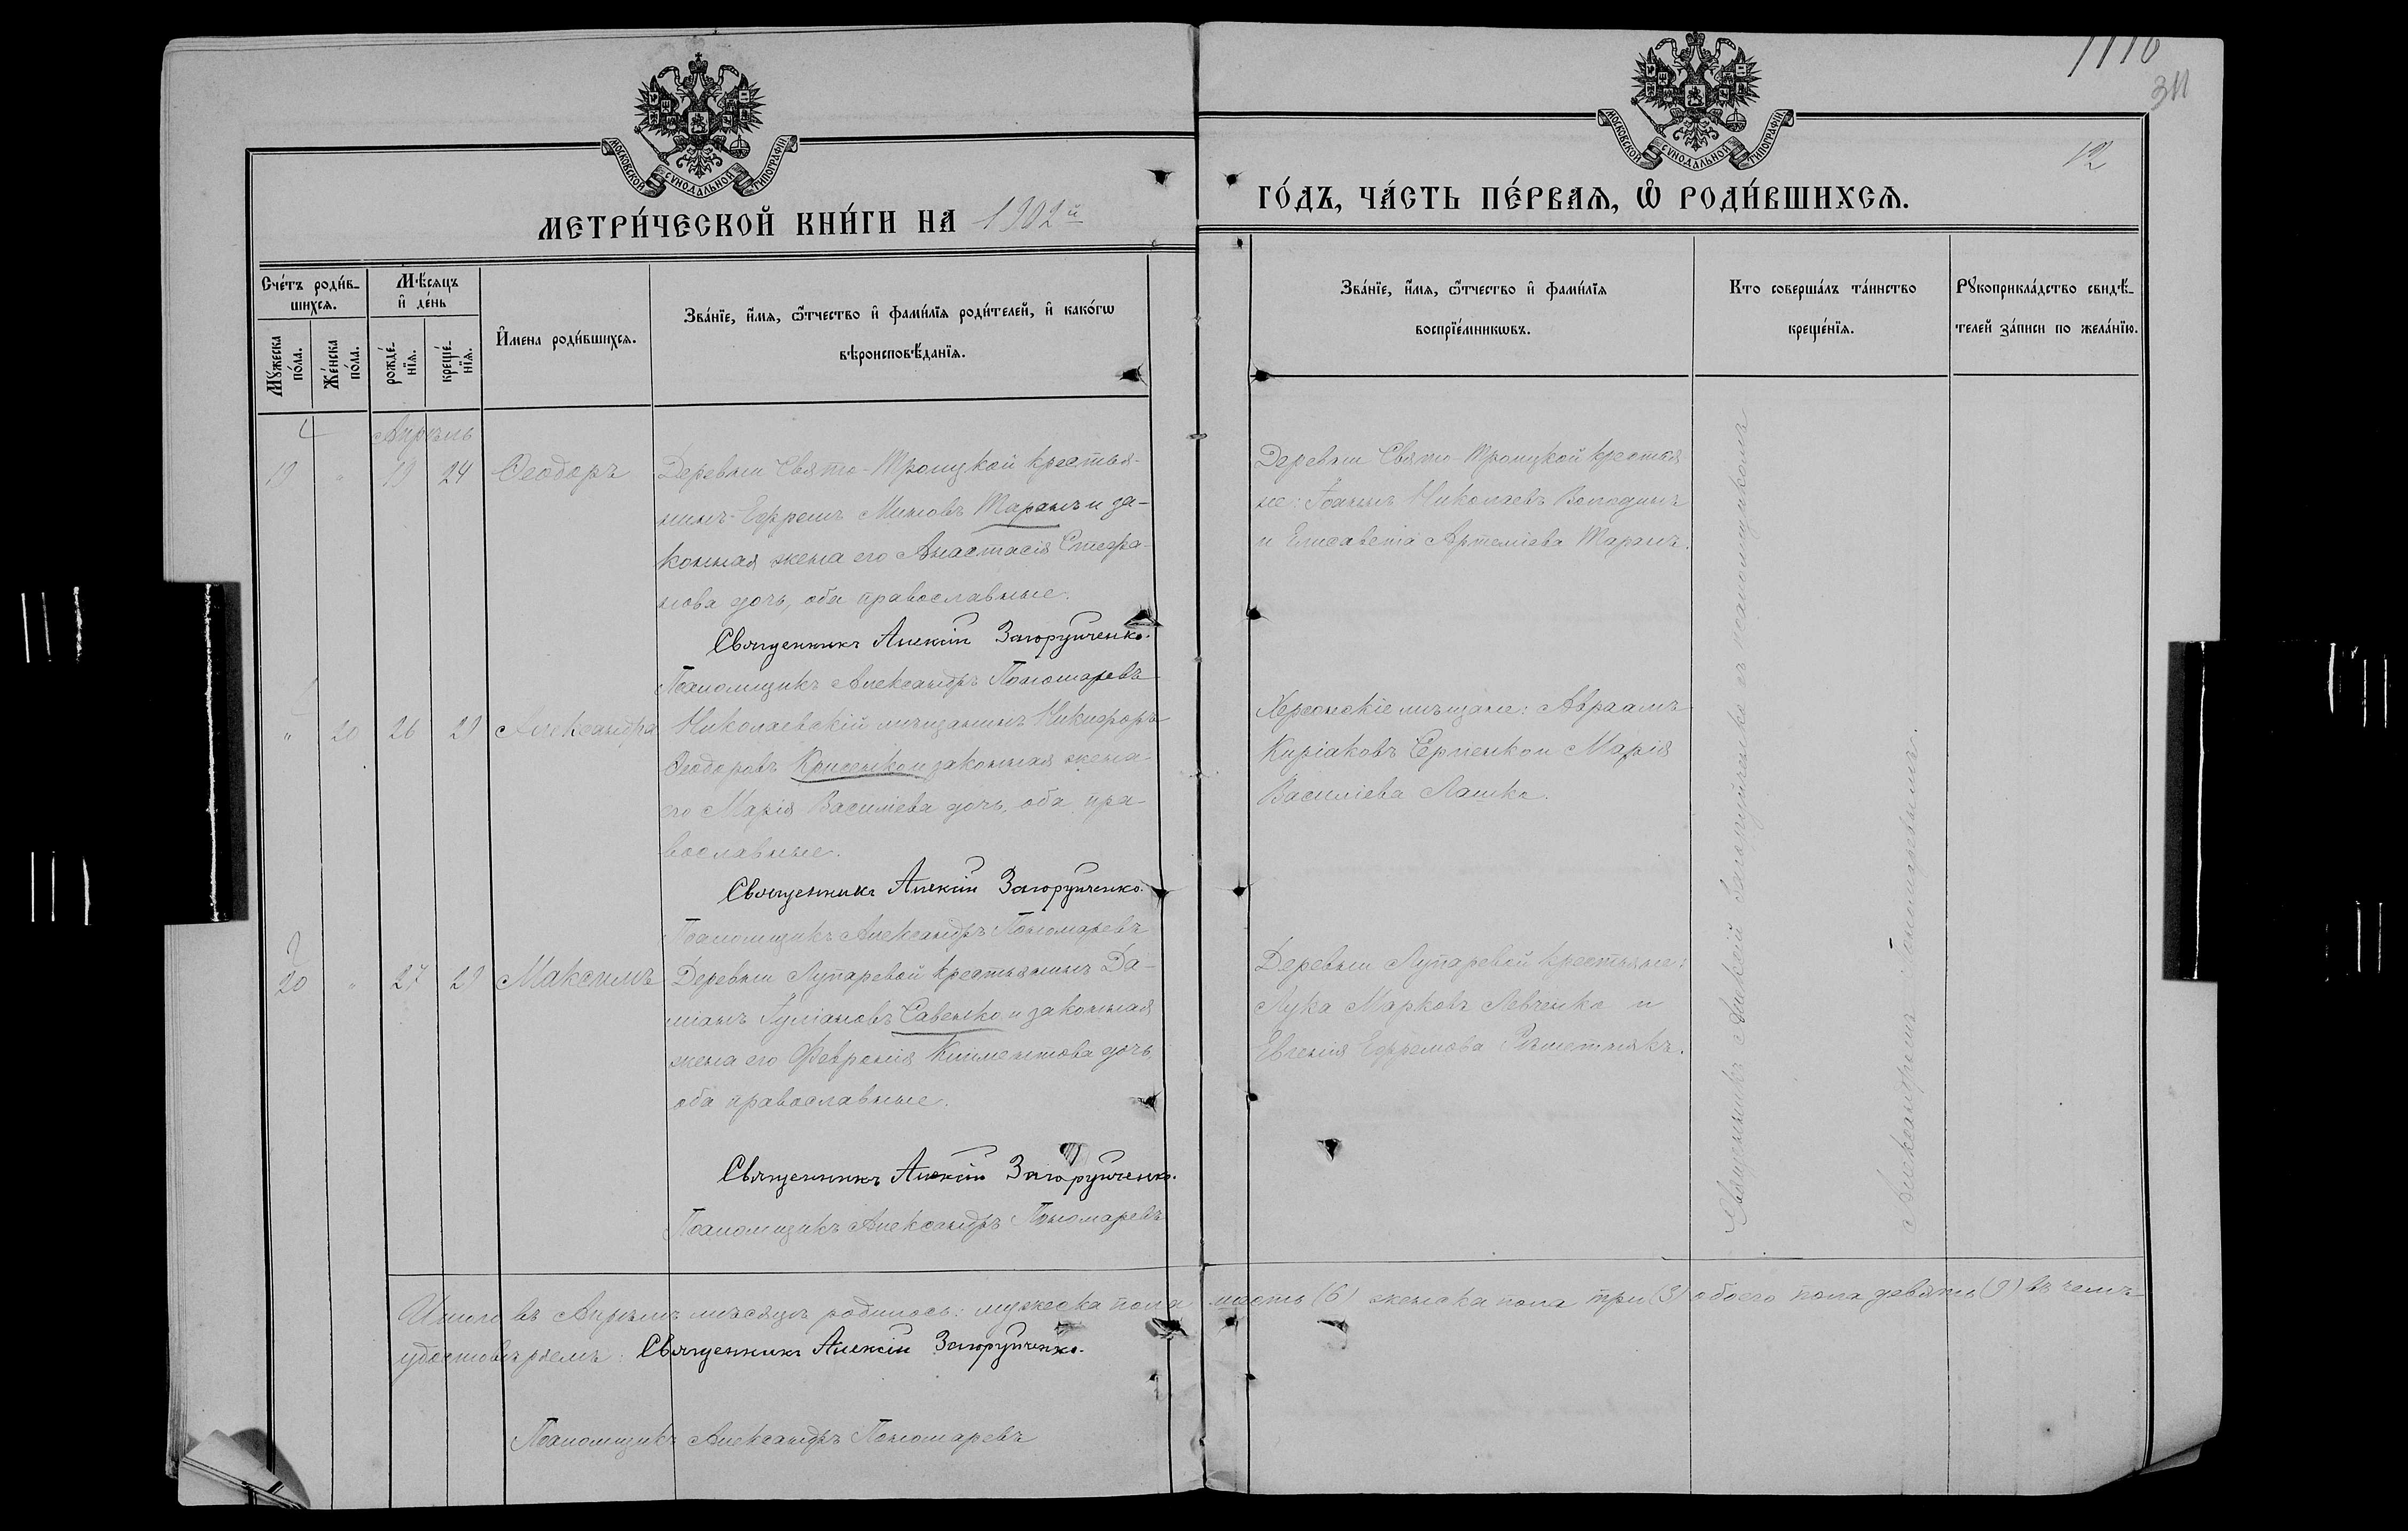 1110
311
12
МОСКОВСКОЙ СѴНОДАЛЬНОЙ ТИПОГРАФІИ
МОСКОВСКОЙ СѴНОДАЛЬНОЙ ТИПОГРАФІИ
МЕТРИ́ЧЕСКОЙ КНИ́ГИ НА 1902й
ГО́ДЪ, ЧА́СТЬ ПЕ́РВАѦ, Ѽ РОДИ́ВШИХСѦ.
Сче́тъ роди́в-
шихсѧ.
Мꙋ́жеска по́ла.
Же́нска по́ла.
Мѣ́сѧцъ
и҆ де́нь
рожде́-
нїѧ.
креще́-
нїѧ.
И҆́мена роди́вшихсѧ.
Зва́нїе, и҆́мѧ, ѻ҆́тчество и҆ фами́лїѧ роди́телей, и҆ како́гѡ
вѣроисповѣ́данїѧ.
Зва́нїе, и҆́мѧ, ѻ҆́тчество и҆ фами́лїѧ
воспрїе́мникѡвъ.
Кто соверша́лъ та́инство
креще́нїѧ.
Рꙋкоприкла́дство свидѣ́-
телей за́писи по жела́нїю.
4 Апрѣль
19 " 19 24 Ѳеодоръ
Деревни Свято-Троицкой крестья-
нинъ Ефремъ Миновъ Таранъ и за-
конная жена его Анастасія Стефа-
нова дочь, оба православные.
Священникъ Алексій Загоруйченко.
Псаломщикъ Александръ Пономаревъ
Деревни Свято-Троицкой крестья
не: Іоаннъ Николаевъ Володинъ
и Елисавета Артеміева Таранъ.
" 20 26 29 Александра
Николаевскій мѣщанинъ Никифоръ
Ѳеодоровъ Крисенко и законная жена
его Марія Василіева дочь, оба пра-
вославные.
Священникъ Алексій Загоруйченко.
Псаломщикъ Александръ Пономаревъ
Херсонскіе мѣщане: Авраамъ
Киріаковъ Серпенко и Марія
Василіева Лашко.
20 " 27 29 Максимъ
Деревни Лупаревой крестьянинъ Да-
міанъ Іуліановъ Савенко и законная
жена его Февронія Климентова дочь,
оба православные.
Священникъ Алексій Загоруйченко.
Псаломщикъ Александръ Пономаревъ
Деревни Лупаревой крестьяне:
Лука Марковъ Левченко и
Евгенія Ефремова Рѣшетнякъ.
Священникъ Алексій Загоруйченко съ псаломщикомъ
Александромъ Пономаревымъ.
Итого въ Апрѣлѣ мѣсяцѣ родилось: мужеска пола шесть (6) женска пола три (3) обоего пола девять (9) въ чемъ
удостовѣряемъ: Священникъ Алексій Загоруйченко.
Псаломщикъ Александръ Пономаревъ